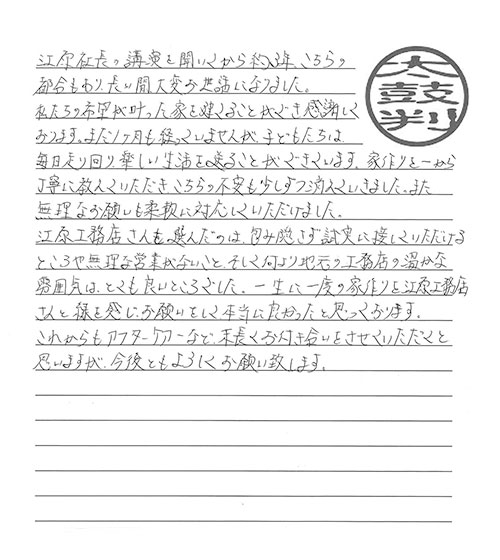 江原社長の講演を聞いてから約3年、こちらの
都合もあり、長い間大変お世話になりました。
私たちの希望が叶った家を建てることができ感謝して
おります。まだ1ヶ月も経っていませんが、子どもたちは、
毎日走り回り、楽しい生活を送ることができています。家作りを一から
丁寧に教えていただき、こちらの不安も少しずつ消えていきました。また
無理なお願いも柔軟に対応していただけました。
江原工務店さんを選んだのは、包み隠さず誠実に接していただける
ところや無理な営業がないこと、そして何より地元の工務店の温かな
雰囲気は、とても良いところでした。一生に一度の家作りを江原工務店
さんと縁を感じ、お願いをして本当に良かったと思っております。
これからもアフターケアーなど、末長くお付き合いをさせていただくと
思いますが、今後ともよろしくお願い致します。
太鼓判